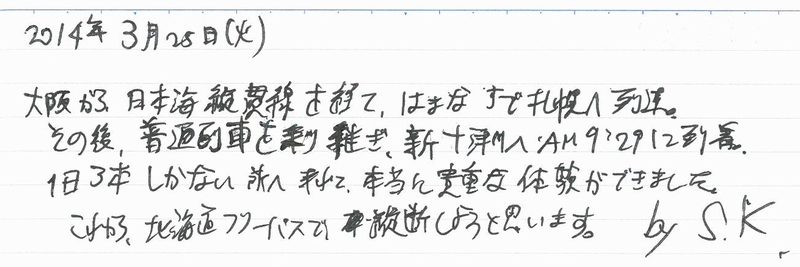 2014年3月25日(火)
大阪から日本海縦貫線を経て、はまなすで札幌へ到達。
その後、普通列車を乗り継ぎ、新十津川へAM9:29に到着。
1日3本しかない所へ来れて、本当に貴重な体験ができました。
これから、北海道フリーパスで、縦断しようと思います。 by S.K